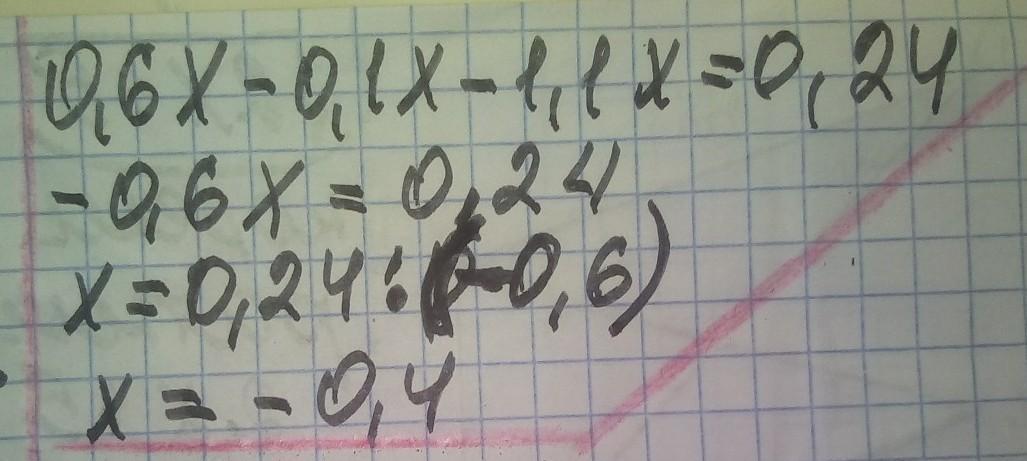 0,6x - 0,1x - 1,1x = 0,24
- 0,6x = 0,24
x = 0,24 : (-0,6)
x = - 0,4